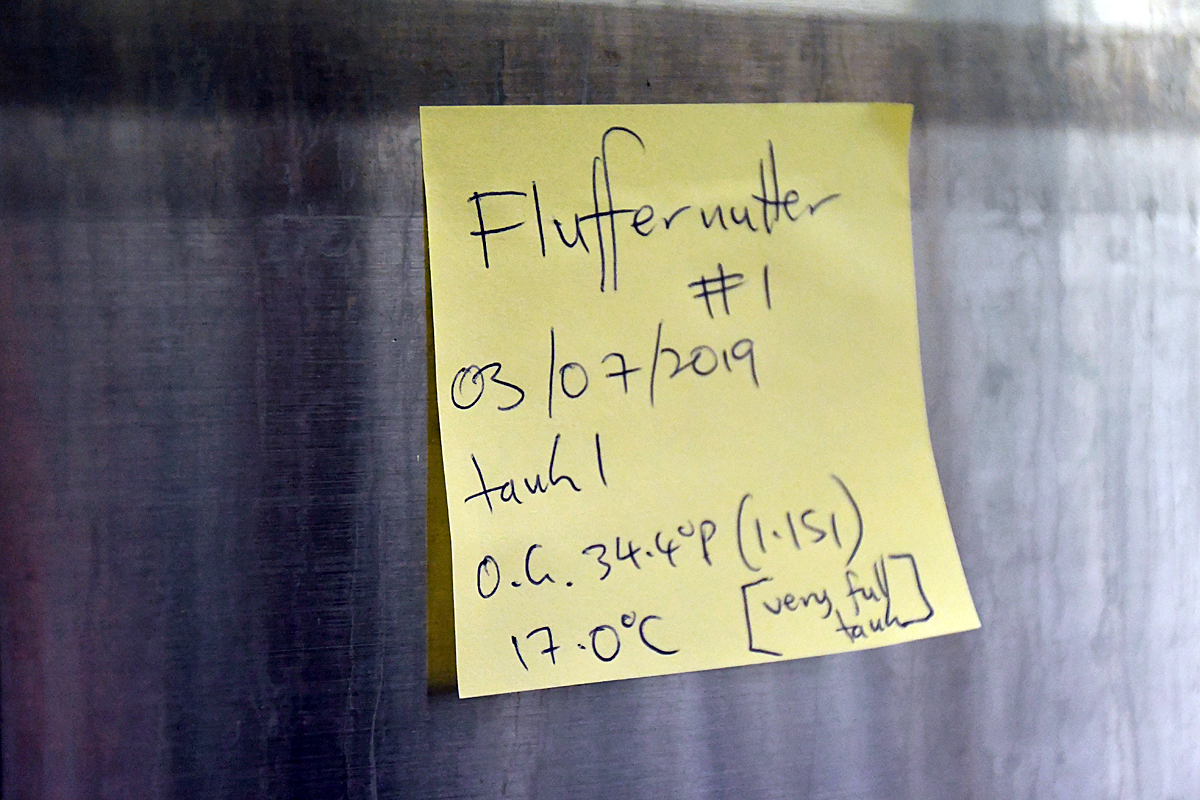 Fluffernutter
#1
03/07/2019
tank 1
O.G. 34.4°P (1.151)
17.0°C [very full
tank]